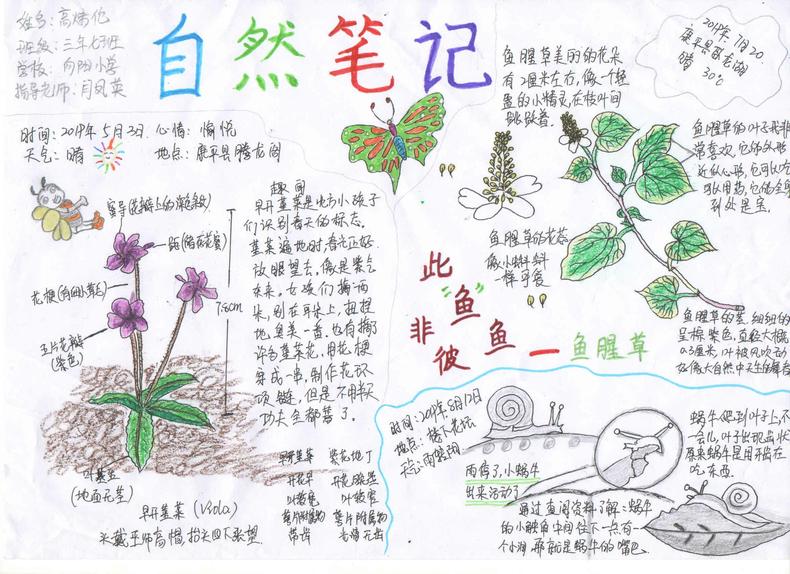 姓名:高炳伦
班级:三年七班
学校:向阳小学
指导老师:闫凤英
自然笔记
时间:2019年5月3日. 心情:愉悦
天气:晴 地点:康平县腾龙阁
蜜导(花瓣上的深色条纹)
距(储存花蜜)
花梗(有细小茸毛)
五片花瓣
(紫色)
7.8cm
叶基生
(地面无茎)
早开堇菜(Viola)
头戴巫师高帽,抬头四下张望
趣闻
早开堇菜是北方小孩子
们识别春天的标志。
堇菜遍地时,春光正好.
放眼望去,像是紫气
东来。女孩们摘两
朵,别在耳朵上,扭捏
地臭美一番.也有摘
许多堇菜花,用花梗
穿成一串,制作花环
项链,但是不用半天
功夫全都蔫了。
早开堇菜 紫花地丁
开花早 开花略迟
叶较宽 叶较窄
萼片附属物 萼片附属物
带齿 光滑无齿
鱼腥草美丽的花朵
有2厘米左右,像一个轻
盈的小精灵,在枝叶间
跳跃着.
2019年7月20.
康平县卧龙湖
晴 30℃
鱼腥草的叶子我非
常喜欢,它的外形
近似心形,它可以吃
可以用药,它的全身
到处是宝。
鱼腥草的花蕊
像小蝌蚪
一样可爱
此
"鱼"
非
彼
鱼
— 鱼腥草
鱼腥草的茎.细细的
呈棕紫色,直径大概
0.5厘米,叶被风吹动
好像大自然中天生的舞者
时间:2019年8月12日
地点:楼下花坛
天气:雨转阴
雨停了,小蜗牛
出来活动了
蜗牛爬到叶子上,不
一会儿,叶子出现齿状
原来蜗牛是用牙齿在
吃东西.
通过查阅资料了解:蜗牛
的小触角中间往下一点有一
个小洞,那就是蜗牛的嘴巴.